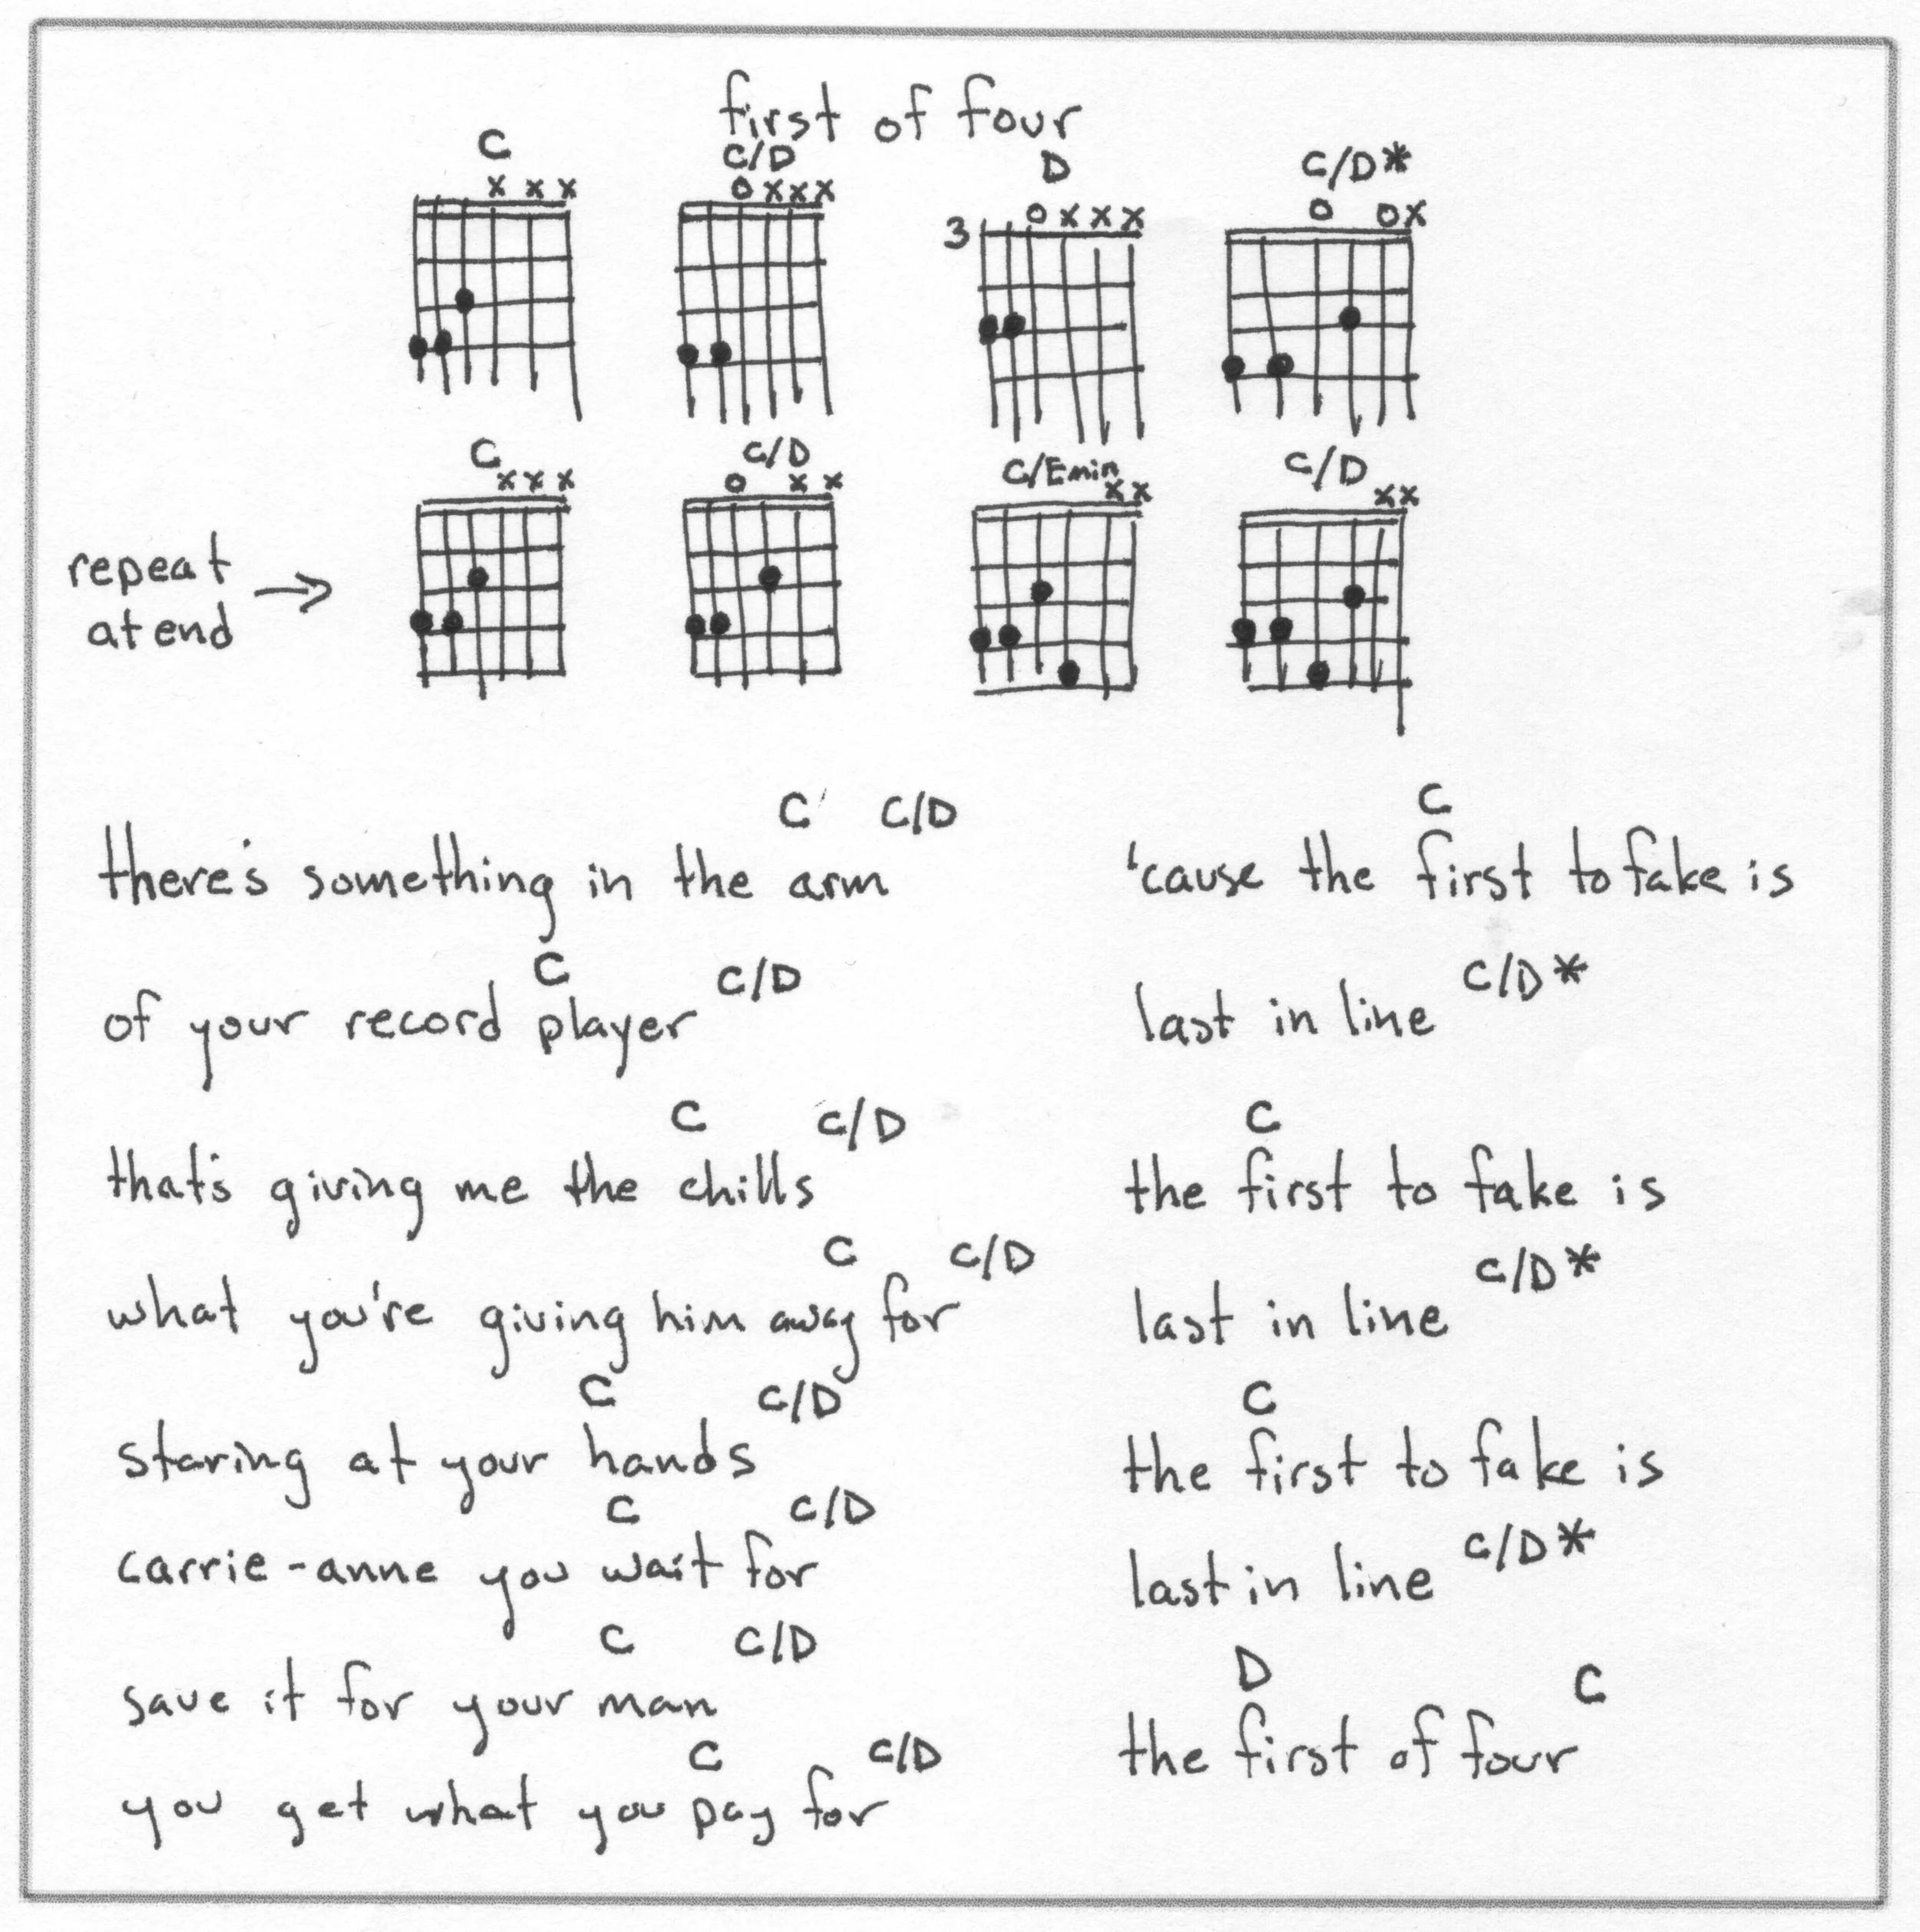 first of four
C C/D D C/D*
x x x o x x x o x x x o o x
3
C C/D C/Emin C/D
x x x o x x x x x x
repeat
at end
C C/D
there's something in the arm
C C/D
of your record player
C C/D
that's giving me the chills
C C/D
what you're giving him away for
C C/D
staring at your hands
C C/D
carrie-anne you wait for
C C/D
save it for your man
C C/D
you get what you pay for
C
'cause the first to fake is
C/D*
last in line
C
the first to fake is
C/D*
last in line
C
the first to fake is
C/D*
last in line
D C
the first of four